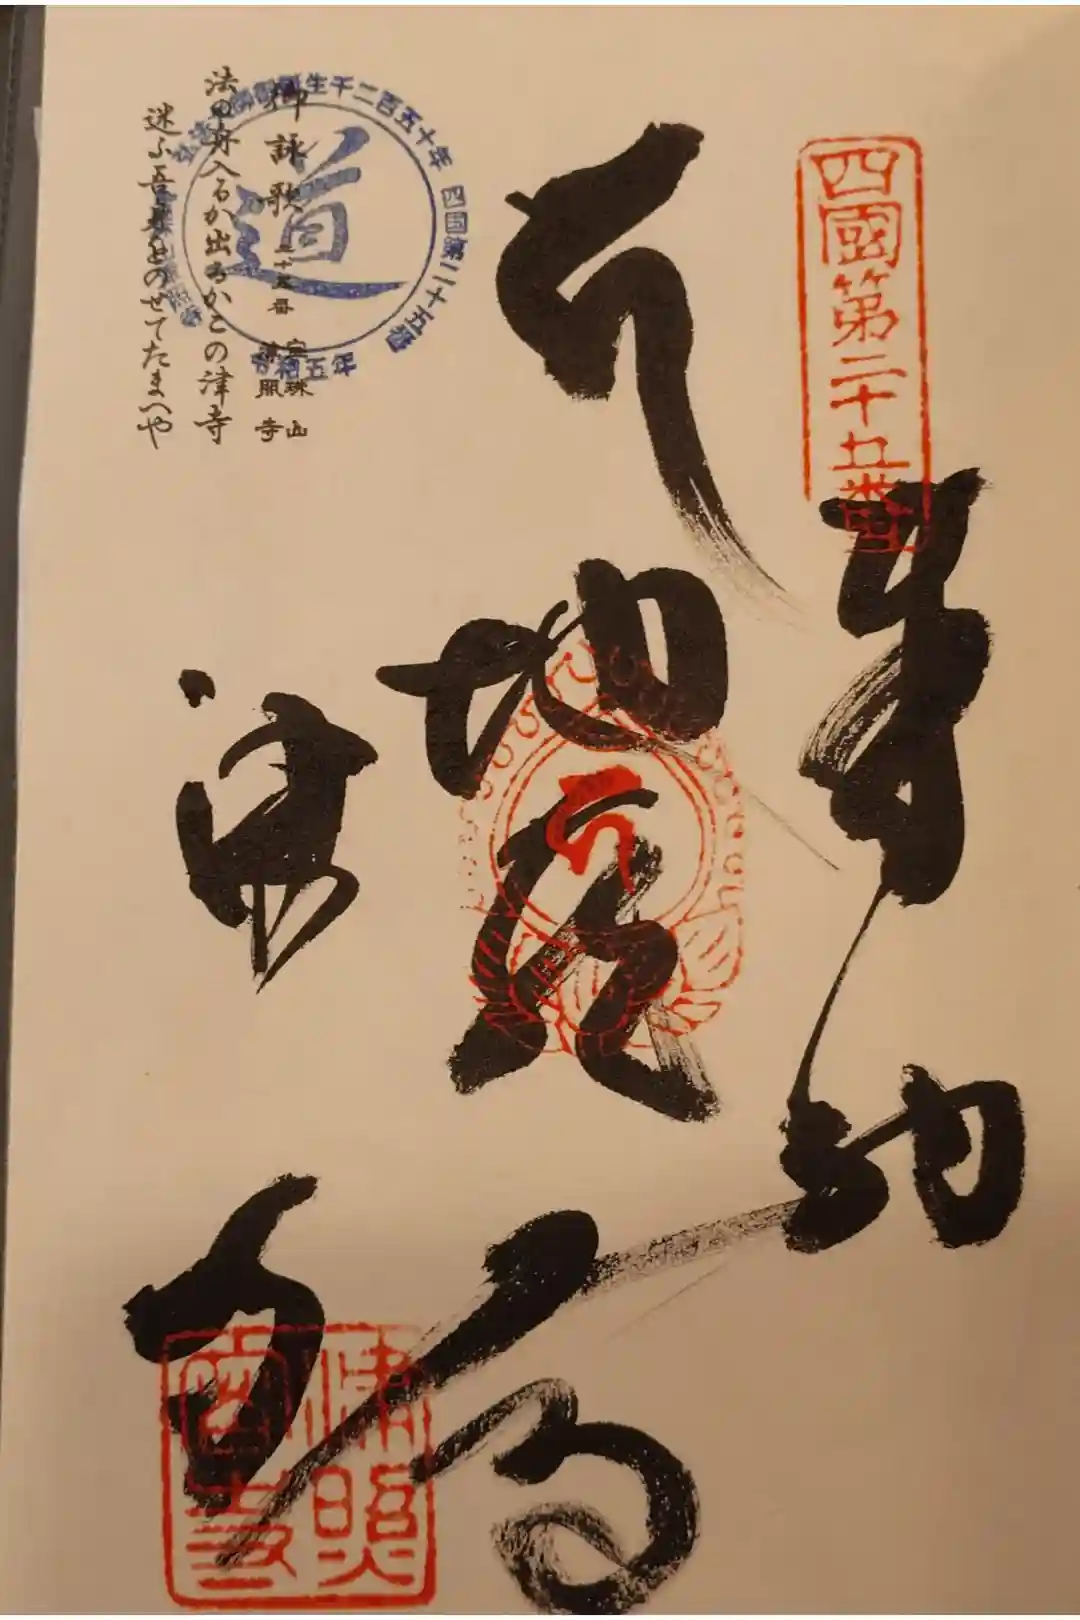 四國第二十五番
奉納
地蔵尊
津寺
御詠歌
二十五番 宝珠山
津照寺
法の舟入るか出るかこの津寺
迷ふ吾身をのせてたまへや
道
生千二百五十年 四国第二十五番
令和五年
津照
寺